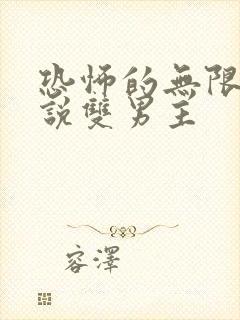 恐怖的無限
說雙男主
容澤